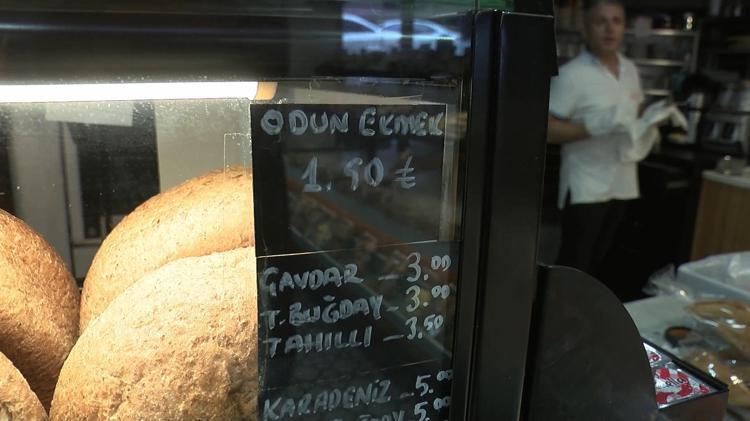 ODUN EKMEK
1.50 ₺
ÇAVDAR - 3.00
T. BUĞDAY - 3.00
TAHILLI - 3.50
KARADENİZ - 5.00
5.00